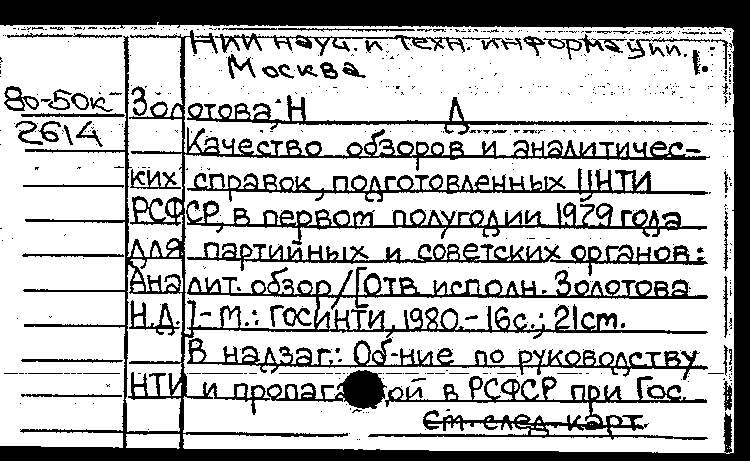 НИИ науч. и техн. информации. 1.
Москва
80-50к Золотова, Н Д
2614 Качество обзоров и аналитичес-
ких справок, подготовленных ЦНТИ
РСФСР, в первом полугодии 1979 года
для партийных и советских органов:
Аналит. обзор/[Отв. исполн. Золотова
Н.Д.].- М.: ГОСИНТИ, 1980.- 16с.; 21см.
В надзаг.: Об-ние по руководству
НТИ и в РСФСР при Гос.
См. след. карт.